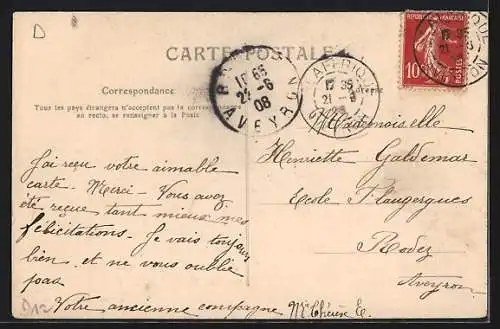 D
CARTE POSTALE
Correspondance
Tous les pays étrangers n'acceptent pas la correspondance
au recto, se renseigner à la Poste
RÉPUBLIQUE FRANÇAISE
10
POSTES
21 -6
AFFRIQUE
12 35
21 -6
24 -6
08
AVEYRON
J'ai reçu votre aimable
carte - Merci - Vous avez
été reçue tant mieux mes
félicitations - Je vais toujours
bien et ne vous oublie
pas
Votre ancienne compagne
Mademoiselle
Henriette Galdemar
Ecole Flaugergues
Rodez
Aveyron